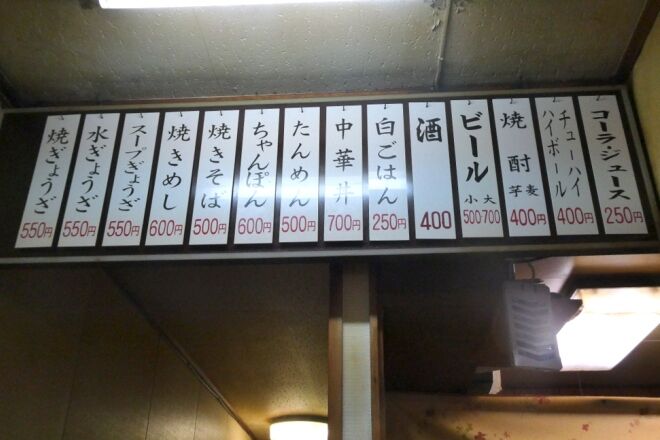 コーラ・ジュース
250円
チューハイ
ハイボール
400円
焼酎
麦
芋
400円
ビール
大 700
小 500
酒
400
白ごはん
250円
中華丼
700円
たんめん
500円
ちゃんぽん
600円
焼きそば
500円
焼きめし
600円
スープぎょうざ
550円
水ぎょうざ
550円
焼ぎょうざ
550円